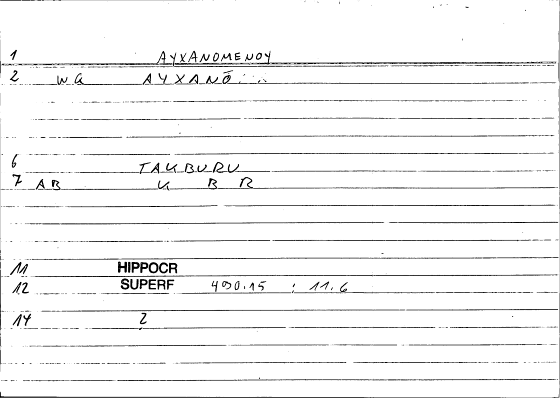 1 AYXANOMENOY
2 WG AYXANŌ...
6 TAKBURU
7 AB K B R
11 HIPPOCR
12 SUPERF 490.15 : 11.6
14 2